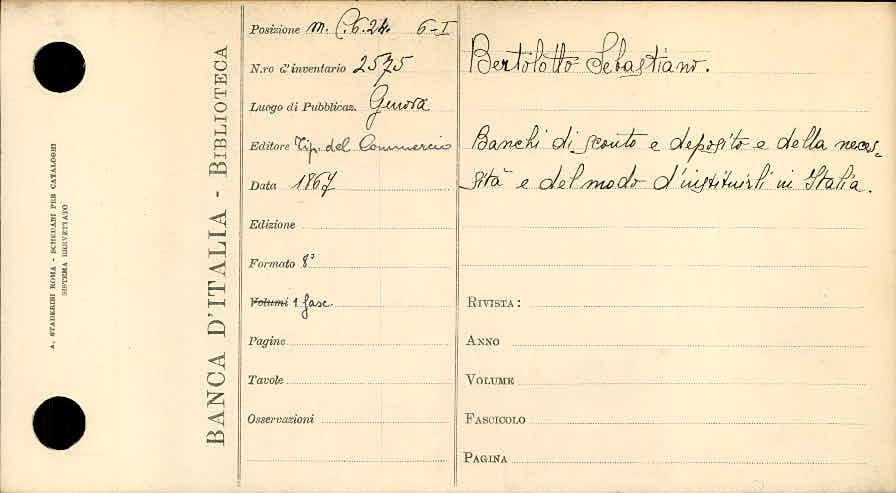 A. STADERINI ROMA - SCHEDARI PER CATALOGHI
SISTEMA BREVETTATO
BANCA D'ITALIA - BIBLIOTECA
Posizione m. C.6.24. 6-I
N.ro d'inventario 2575
Luogo di Pubblicaz. Genova
Editore Tip. del Commercio
Data 1867
Edizione
Formato 8°
Volumi 1 fasc.
Pagine
Tavole
Osservazioni
Bertolotto Sebastiano.
Banchi di sconto e deposito e della neces-
sità e del modo d'instituirli in Italia.
RIVISTA:
ANNO
VOLUME
FASCICOLO
PAGINA